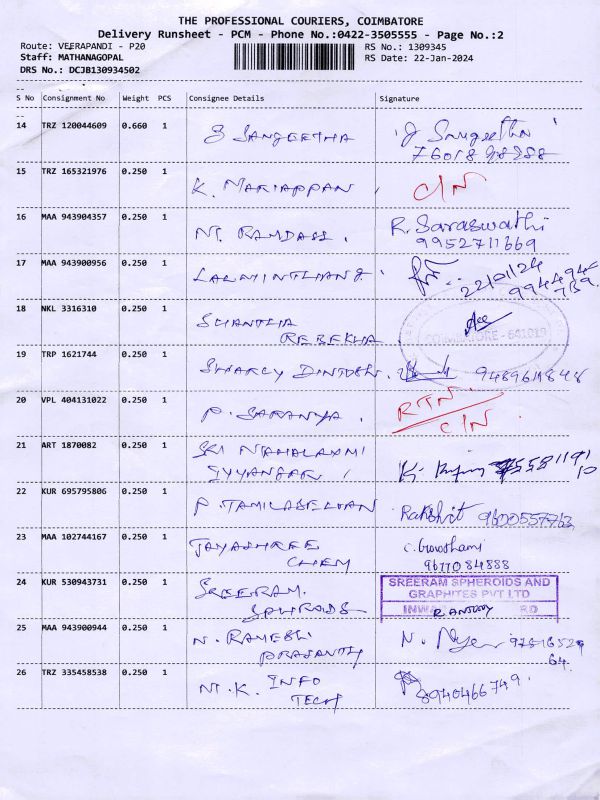 THE PROFESSIONAL COURIERS, COIMBATORE
Delivery Runsheet - PCM - Phone No.:0422-3505555 - Page No.:2
Route: VEERAPANDI - P20 RS No.: 1309345
Staff: MATHANAGOPAL RS Date: 22-Jan-2024
DRS No.: DCJB130934502
S No Consignment No Weight PCS Consignee Details Signature
14 TRZ 120044609 0.660 1 S SANGEETHA J Sangeetha
15 TRZ 165321976 0.250 1 K. MARIAPPAN C/N
16 MAA 943904357 0.250 1 NT. RAMDASS. R. Saraswathi
9952711669
17 MAA 943900956 0.250 1 22/01/24
994494
789
18 NKL 3316310 0.250 1 SHANTHA
REBEKHA
COIMBATORE - 641019
19 TRP 1621744 0.250 1
20 VPL 404131022 0.250 1 P. SARANYA. RTN
C/N
21 ART 1870082 0.250 1 SRI MAHALAXMI
IYYANGAR
22 KUR 695795806 0.250 1 P. TAMILSELVAN Rakshit 9600557763
23 MAA 102744167 0.250 1 JAYASHREE C. Gowshami
CHEM 9677084888
24 KUR 530943731 0.250 1 SREERAM SREERAM SPHEROIDS AND
GRAPHITES PVT LTD
SPHROIDS INWARD R. ANTONY
25 MAA 943900944 0.250 1 N. RAMESH N.
PRASANTH 64.
26 TRZ 335458538 0.250 1 NT. K. INFO
TECH 8940466749.